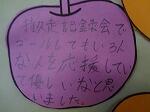 持久走記録会で
ゴールしてもいろん
な人を応援してい
て優しいなと思
いました。